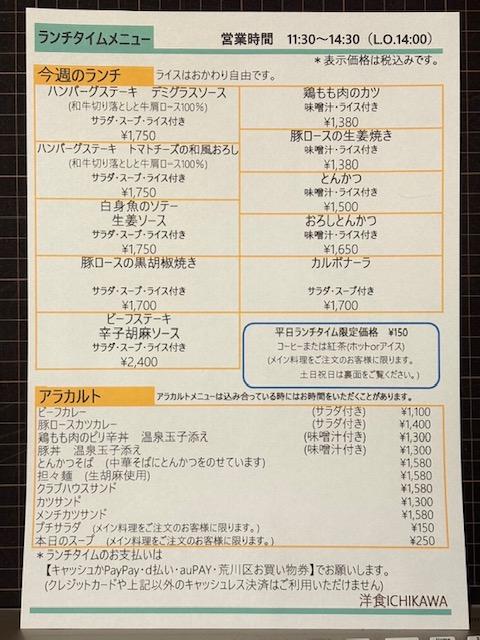 ランチタイムメニュー
営業時間 11:30～14:30（L.O.14:00）
＊表示価格は税込みです。
今週のランチ ライスはおかわり自由です。
ハンバーグステーキ デミグラスソース
(和牛切り落としと牛肩ロース100%)
サラダ・スープ・ライス付き
¥1,750
ハンバーグステーキ トマトチーズの和風おろし
(和牛切り落としと牛肩ロース100%)
サラダ・スープ・ライス付き
¥1,750
白身魚のソテー
生姜ソース
サラダ・スープ・ライス付き
¥1,750
豚ロースの黒胡椒焼き
サラダ・スープ・ライス付き
¥1,700
ビーフステーキ
辛子胡麻ソース
サラダ・スープ・ライス付き
¥2,400
鶏もも肉のカツ
味噌汁・ライス付き
¥1,380
豚ロースの生姜焼き
味噌汁・ライス付き
¥1,380
とんかつ
味噌汁・ライス付き
¥1,500
おろしとんかつ
味噌汁・ライス付き
¥1,650
カルボナーラ
サラダ・スープ付き
¥1,700
平日ランチタイム限定価格 ¥150
コーヒーまたは紅茶(ホットorアイス)
(メイン料理をご注文のお客様に限ります。
土日祝日は裏面をご覧ください。)
アラカルト アラカルトメニューは込み合っている時にはお時間をいただくことがあります。
ビーフカレー (サラダ付き) ¥1,100
豚ロースカツカレー (サラダ付き) ¥1,400
鶏もも肉のピリ辛丼 温泉玉子添え (味噌汁付き) ¥1,300
豚丼 温泉玉子添え (味噌汁付き) ¥1,300
とんかつそば (中華そばにとんかつをのせています) ¥1,580
担々麺 (生胡麻使用) ¥1,580
クラブハウスサンド ¥1,580
カツサンド ¥1,300
メンチカツサンド ¥1,580
プチサラダ (メイン料理をご注文のお客様に限ります。) ¥150
本日のスープ (メイン料理をご注文のお客様に限ります。) ¥250
＊ランチタイムのお支払いは
【キャッシュかPayPay・d払い・auPAY・荒川区お買い物券】でお願いします。
(クレジットカードや上記以外のキャッシュレス決済はご利用いただけません)
洋食ICHIKAWA